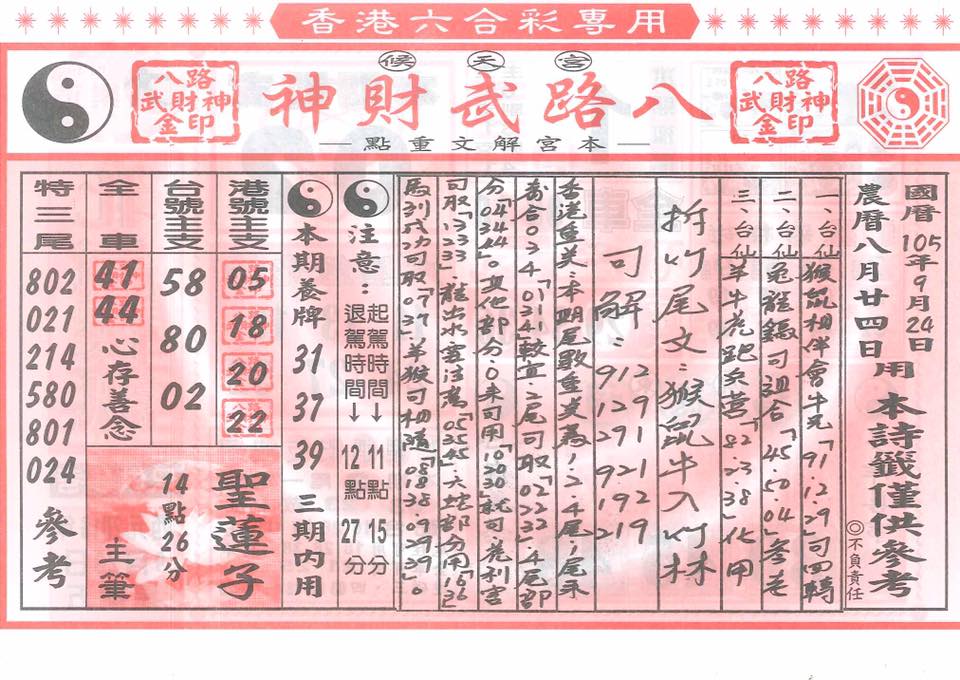 香港六合彩專用
候天宮
八路武財神
八路武財神金印
八路武財神金印
—本宮解文重點—
國曆105年9月24日
農曆八月廿四日 用
本詩籤僅供參考
◎不負責任
一、台仙 猴鼠相伴會牛羊「91.12.29」可四轉
二、台仙 兔龍雞可迴合「45.50.04」
三、台仙 羊牛虎跑兵營「82.23.38」
拆竹尾文：猴鼠牛入竹林
可解：
912 129 291
921 192 219
香港重美：本期尾數重美為1.2.4尾，1尾
合034「01 31 34」較宜，2尾可取「02 22 32」，4尾部
分「04 34 44」。其他部分：0來可用「10 20 30」就可，虎利宮
可取「13 23 33」，龍出水雲注萬「05 35 45」，六蛇部分用「16 36」
馬到成功可取「07 37」，羊猴可相隨「08 18 38.09 29 39」。
注意：
起駕時間↓11點15分
退駕時間↓12點27分
本期養牌 31 37 39 三期內用
港號主支
05
18
20
22
台號主支
58
80
02
全車
41
44
心存善念
聖蓮子
14點26分
主筆
特三尾
802
021
214
580
801
024
參考